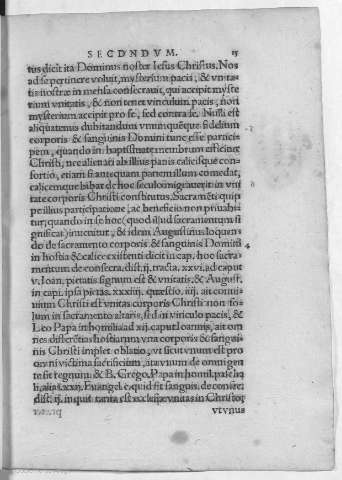 SECVNDVM. 15
tus dicit ita Dominus noster Iesus Christus. Nos
ad se pertinere voluit, mysterium pacis, & vnita-
tis nostræ in mensa consecrauit, qui accipit myste
rium vnitatis, & non tenet vinculum pacis, non
mysterium accipit pro se, sed contra se. Nulli est
aliquatenus dubitandum vnumquemque fidelium
corporis & sanguinis Domini tunc esse particip
pem, quando in baptismate membrum efficitur
Christi, nec alienari ab illius panis calicisque con-
sortio, etiam si antequam panem illum comedat,
calicemque bibat de hoc seculo migrauerit in vni
tate corporis Christi constitutus. Sacramenti quip
pe illius participatione, ac beneficio non priuabi
tur, quando in se hoc quod illud sacramentum si
gnificat inuenitur, & idem Augustinus loquen-
do de sacramento corporis & sanguinis Domini
in hostia & calice existenti dicit in cap. hoc sacra-
mentum de consecra. dist. ij. tracta. xxvi. ad caput
v. Ioan. pietatis signum est & vnitatis. & August.
in capi. ipsa pietas. xxxiij. quæstio. iiij. ait conui-
uium Christi est vnitas corporis Christi non so-
lum in sacramento altaris, sed in vinculo pacis, &
Leo Papa in homilia ad xij. caput Ioannis, ait om
nes differentias hostiarum vna corporis & sangui-
nis Christi implet oblatio, vt sicut vnum est pro
omni victima sacrificium, ita vnum de omni gen
te sit regnum & B. Grego. Papa in homil. pascha
li, alias xxij. Euangel. & quid sit sanguis. de consecr.
dist. ij. inquit tanta est ecclesiæ vnitas in Christo,
vtvnus